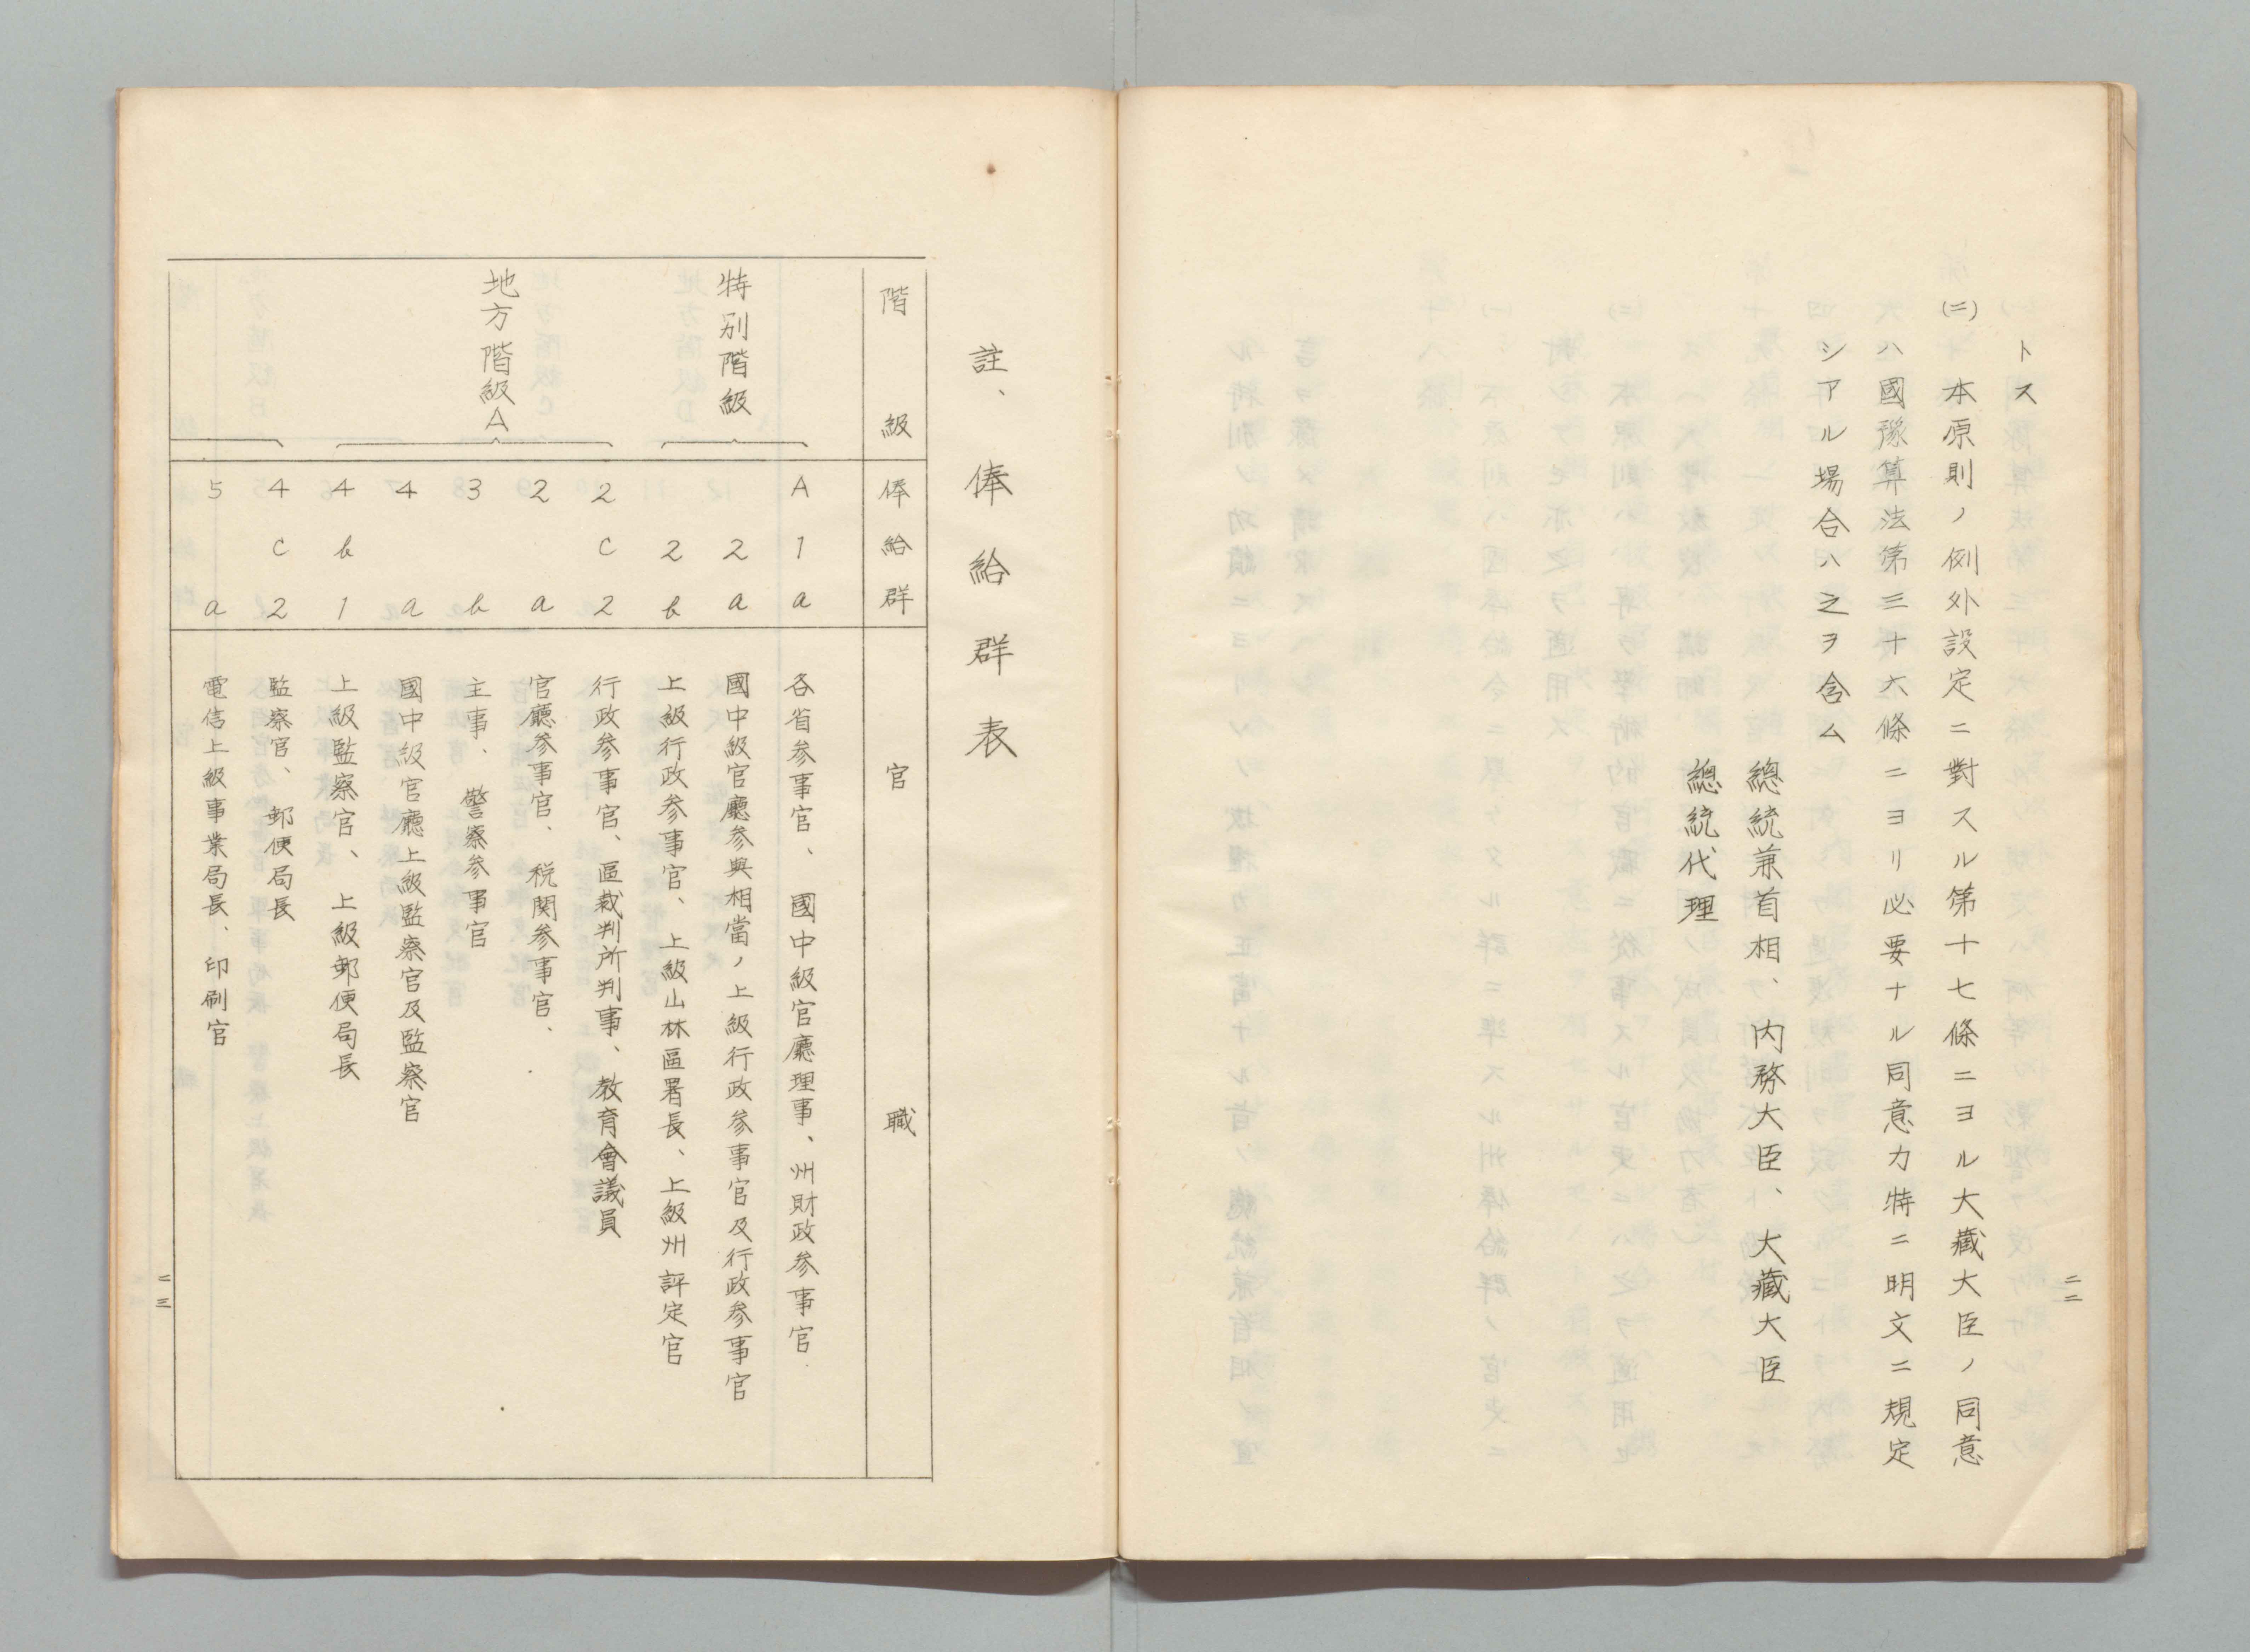 二二
トス
(二) 本原則ノ例外設定ニ對スル第十七條ニヨル大藏大臣ノ同意
ハ國豫算法第三十六條ニヨリ必要ナル同意カ特ニ明文ニ規定
シアル場合ハ之ヲ含ム
總統兼首相、內務大臣、大藏大臣
總統代理
註、俸給群表
階級 俸給群 官職
特別階級
A1a 各省参事官、國中級官廳理事、州財政参事官
2a 國中級官廳参與相當ノ上級行政参事官及行政参事官
2b 上級行政参事官、上級山林區署長、上級州評定官
地方階級A
2c2 行政参事官、區裁判所判事、教育會議員
2a 官廳参事官、税関参事官、
3b 主事、警察参事官
4a 國中級官廳上級監察官及監察官
4b1 上級監察官、上級郵便局長
4c2 監察官、郵便局長
5a 電信上級事業局長、印刷官
二三